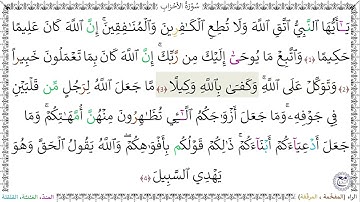 سُورَةُ الأَحْزَابِ
يَـٰٓأَيُّهَا ٱلنَّبِىُّ ٱتَّقِ ٱللَّهَ وَلَا تُطِعِ ٱلْكَـٰفِرِينَ وَٱلْمُنَـٰفِقِينَ ۗ إِنَّ ٱللَّهَ كَانَ عَلِيمًا
حَكِيمًا (١) وَٱتَّبِعْ مَا يُوحَىٰٓ إِلَيْكَ مِن رَّبِّكَ ۚ إِنَّ ٱللَّهَ كَانَ بِمَا تَعْمَلُونَ خَبِيرًا
(٢) وَتَوَكَّلْ عَلَى ٱللَّهِ ۚ وَكَفَىٰ بِٱللَّهِ وَكِيلًا (٣) مَّا جَعَلَ ٱللَّهُ لِرَجُلٍ مِّن قَلْبَيْنِ
فِى جَوْفِهِۦ ۚ وَمَا جَعَلَ أَزْوَٰجَكُمُ ٱلَّـٰٓـِٔى تُظَـٰهِرُونَ مِنْهُنَّ أُمَّهَـٰتِكُمْ ۚ وَمَا
جَعَلَ أَدْعِيَآءَكُمْ أَبْنَآءَكُمْ ۚ ذَٰلِكُمْ قَوْلُكُم بِأَفْوَٰهِكُمْ ۖ وَٱللَّهُ يَقُولُ ٱلْحَقَّ وَهُوَ
يَهْدِى ٱلسَّبِيلَ (٤)